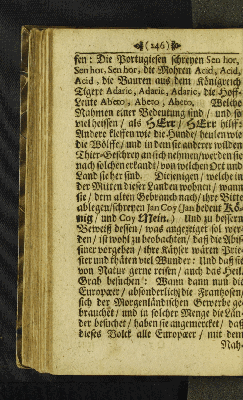 (246)
sen: Die Portugiesen schreyen Sen hor,
Sen hor, Sen hor, die Mohren Acid, Acid,
Acid, die Bauren aus dem Königreich
Tigere Adaric, Adaric, Adaric, die Hoff-
Leute Abeto, Abeto, Abeto, Welche
Nahmen einer Bedeutung sind / und so
viel heissen / als HErr / HErr hilff:
Andere kleffen wie die Hunde / heulen wie
die Wölffe / und in dem sie anderer wilden
Thier-Geschrey an sich nehmen / werden sie
nach solchen erkandt / von welchen Ort und
Land sie her sind. Diejenigen / welche in
der Mitten dieser Landen wohnen / wann
sie / dem alten Gebrauch nach / ihre Bitte
ablegen / schreyen Jan Coy (Jan bedeut Kö-
nig / und Coy Mein.) Und zu besserm
Beweiß dessen / was angezeiget sol wer-
den / ist wohl zu beobachten / daß die Abis-
siner vorgeben / ihre Käyser wären Prie-
ster und thäten viel Wunder: Und daß sie
von Natur gerne reisen / auch das Heil.
Grab besuchen: Wann dann nun die
Europæer / absonderlich die Frantzosen /
sich der Morgenländschen Gewerbe ge-
brauchet / und in solcher Menge die Län-
der besuchet / haben sie angemercket / daß
dieses Volck alle Europæer / mit dem
Nah-